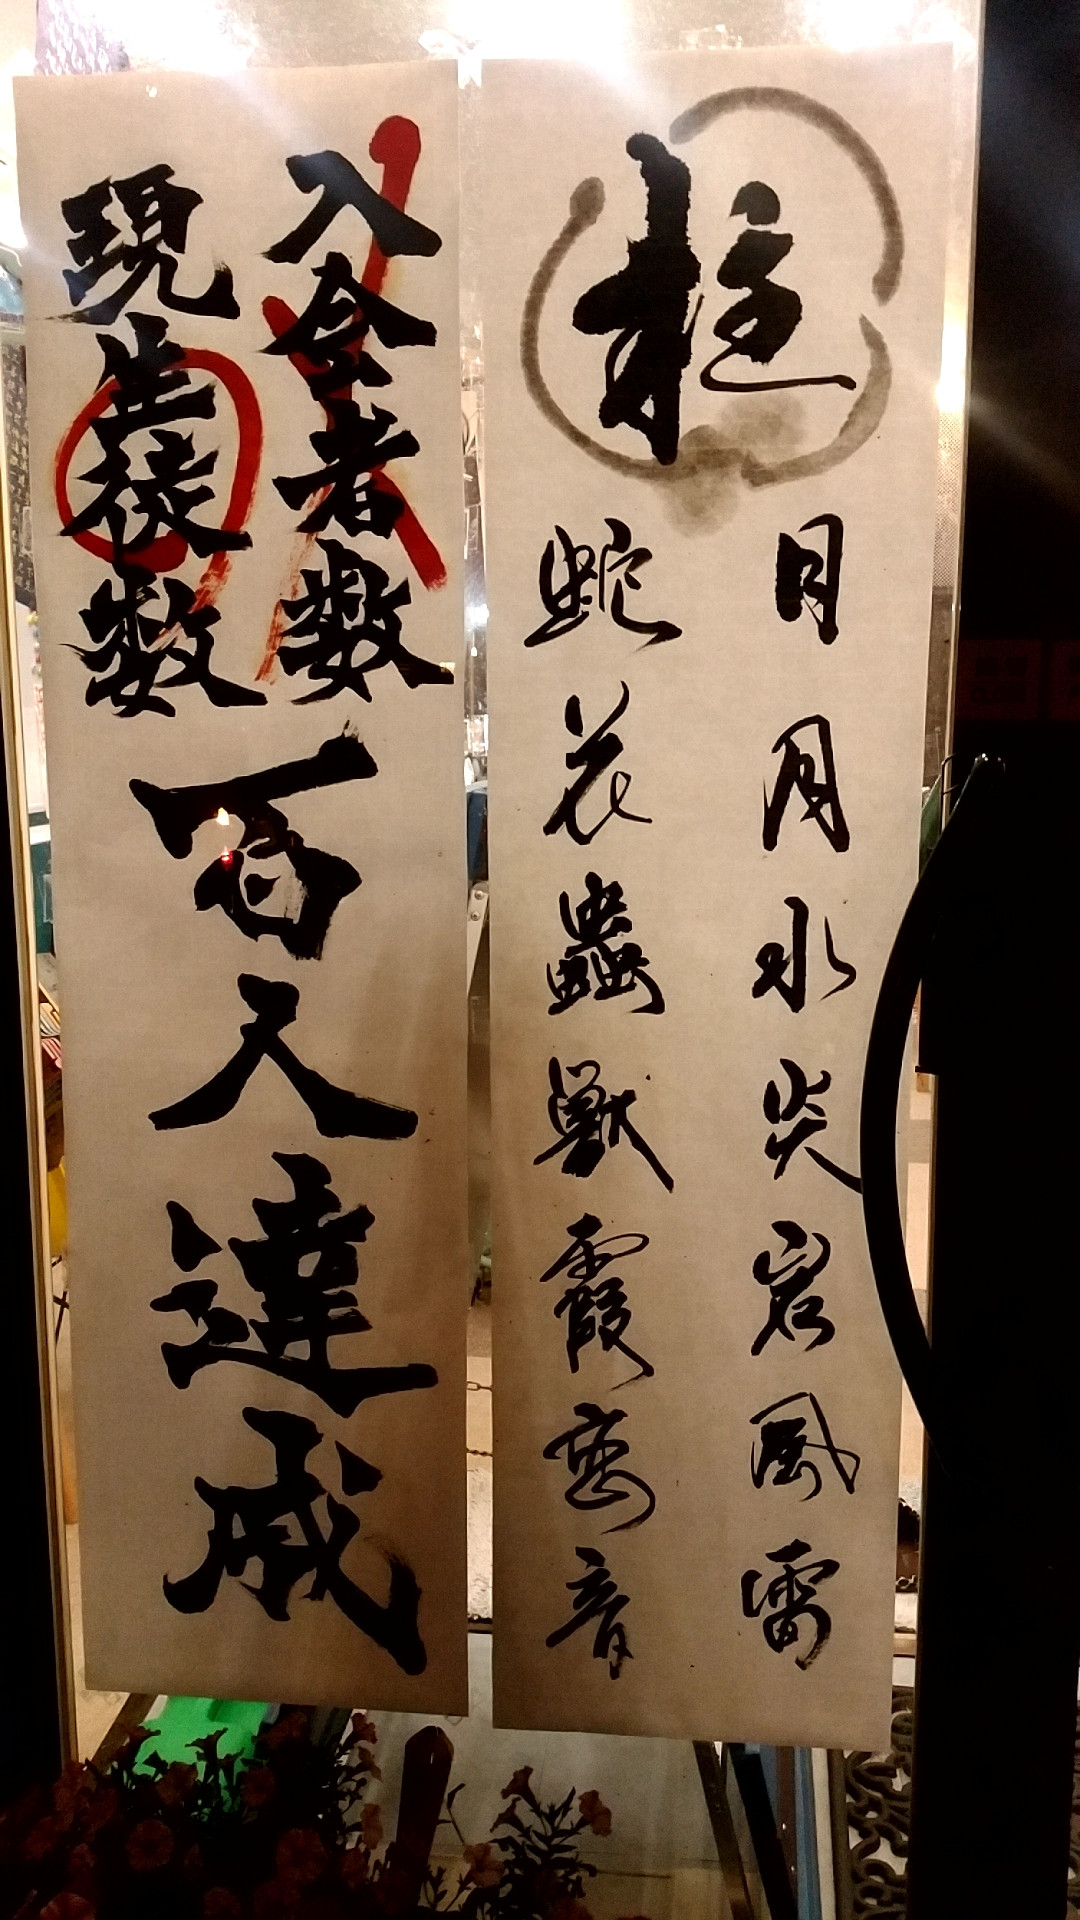 柱
日月水炎岩風雷
蛇花蟲獣霞恋音
入会者数
現生徒数
百人達成